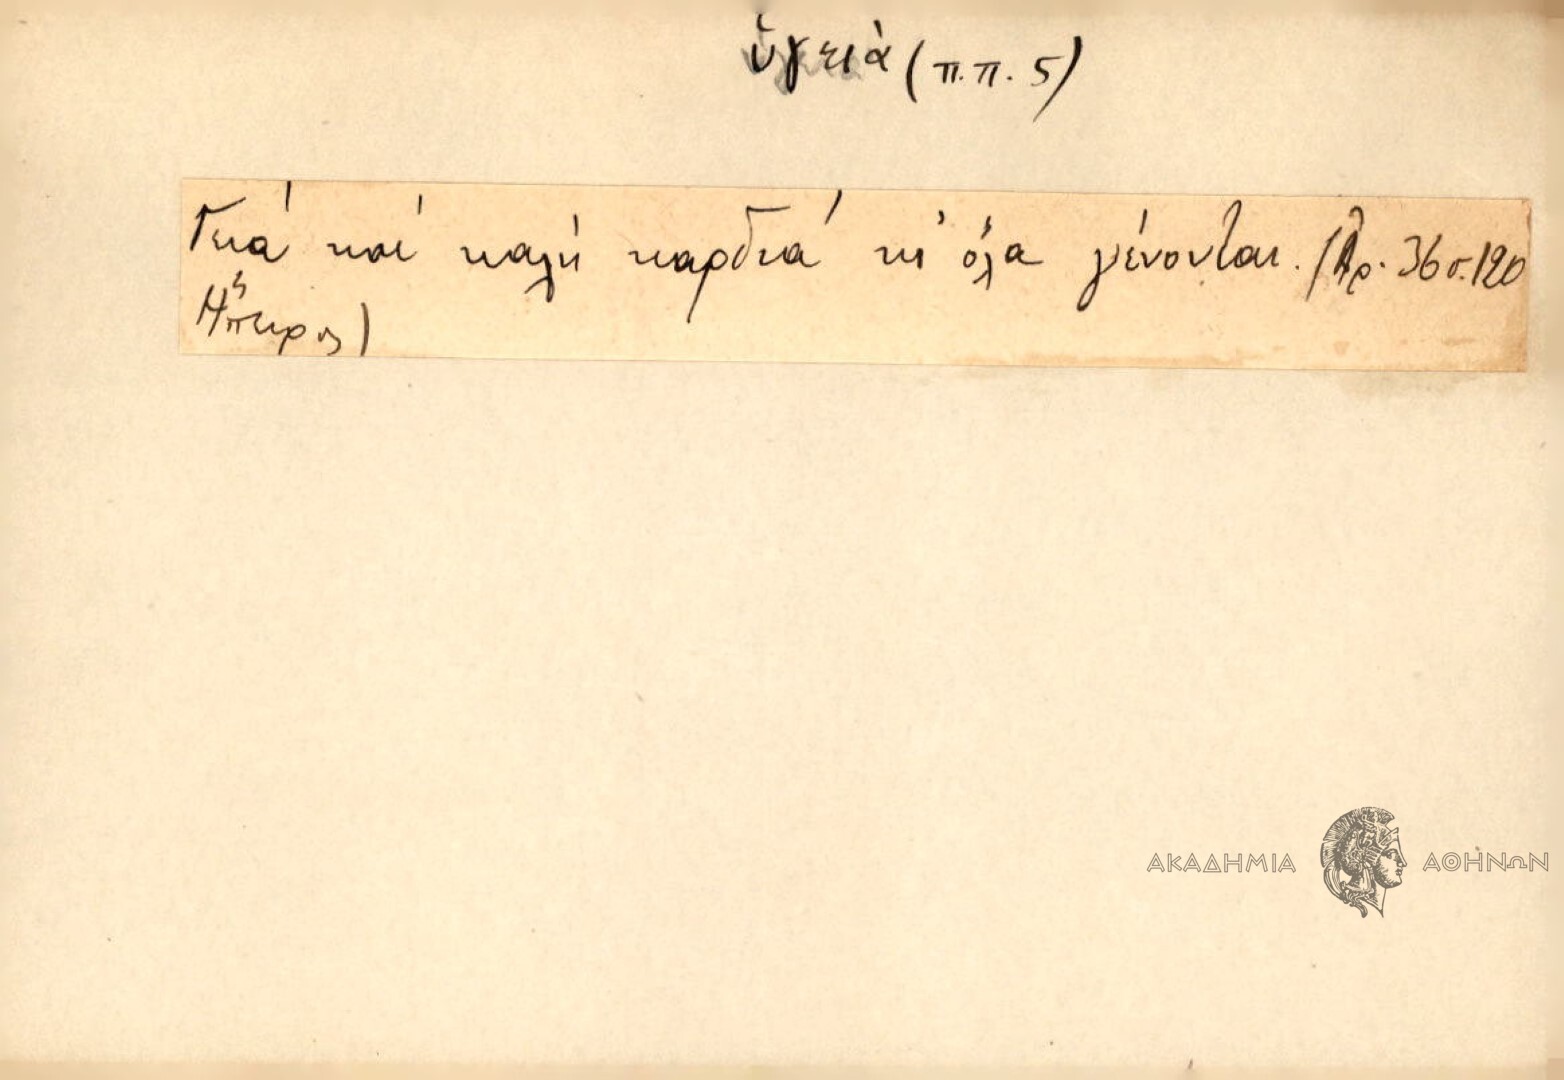 ὑγειὰ (π.π. 5)
Γειά καί καλή καρδιά κι' όλα γένονται. (Αρ. 36 σ. 120
Ήπειρος)
ΑΚΑΔΗΜΙΑ ΑΘΗΝΩΝ